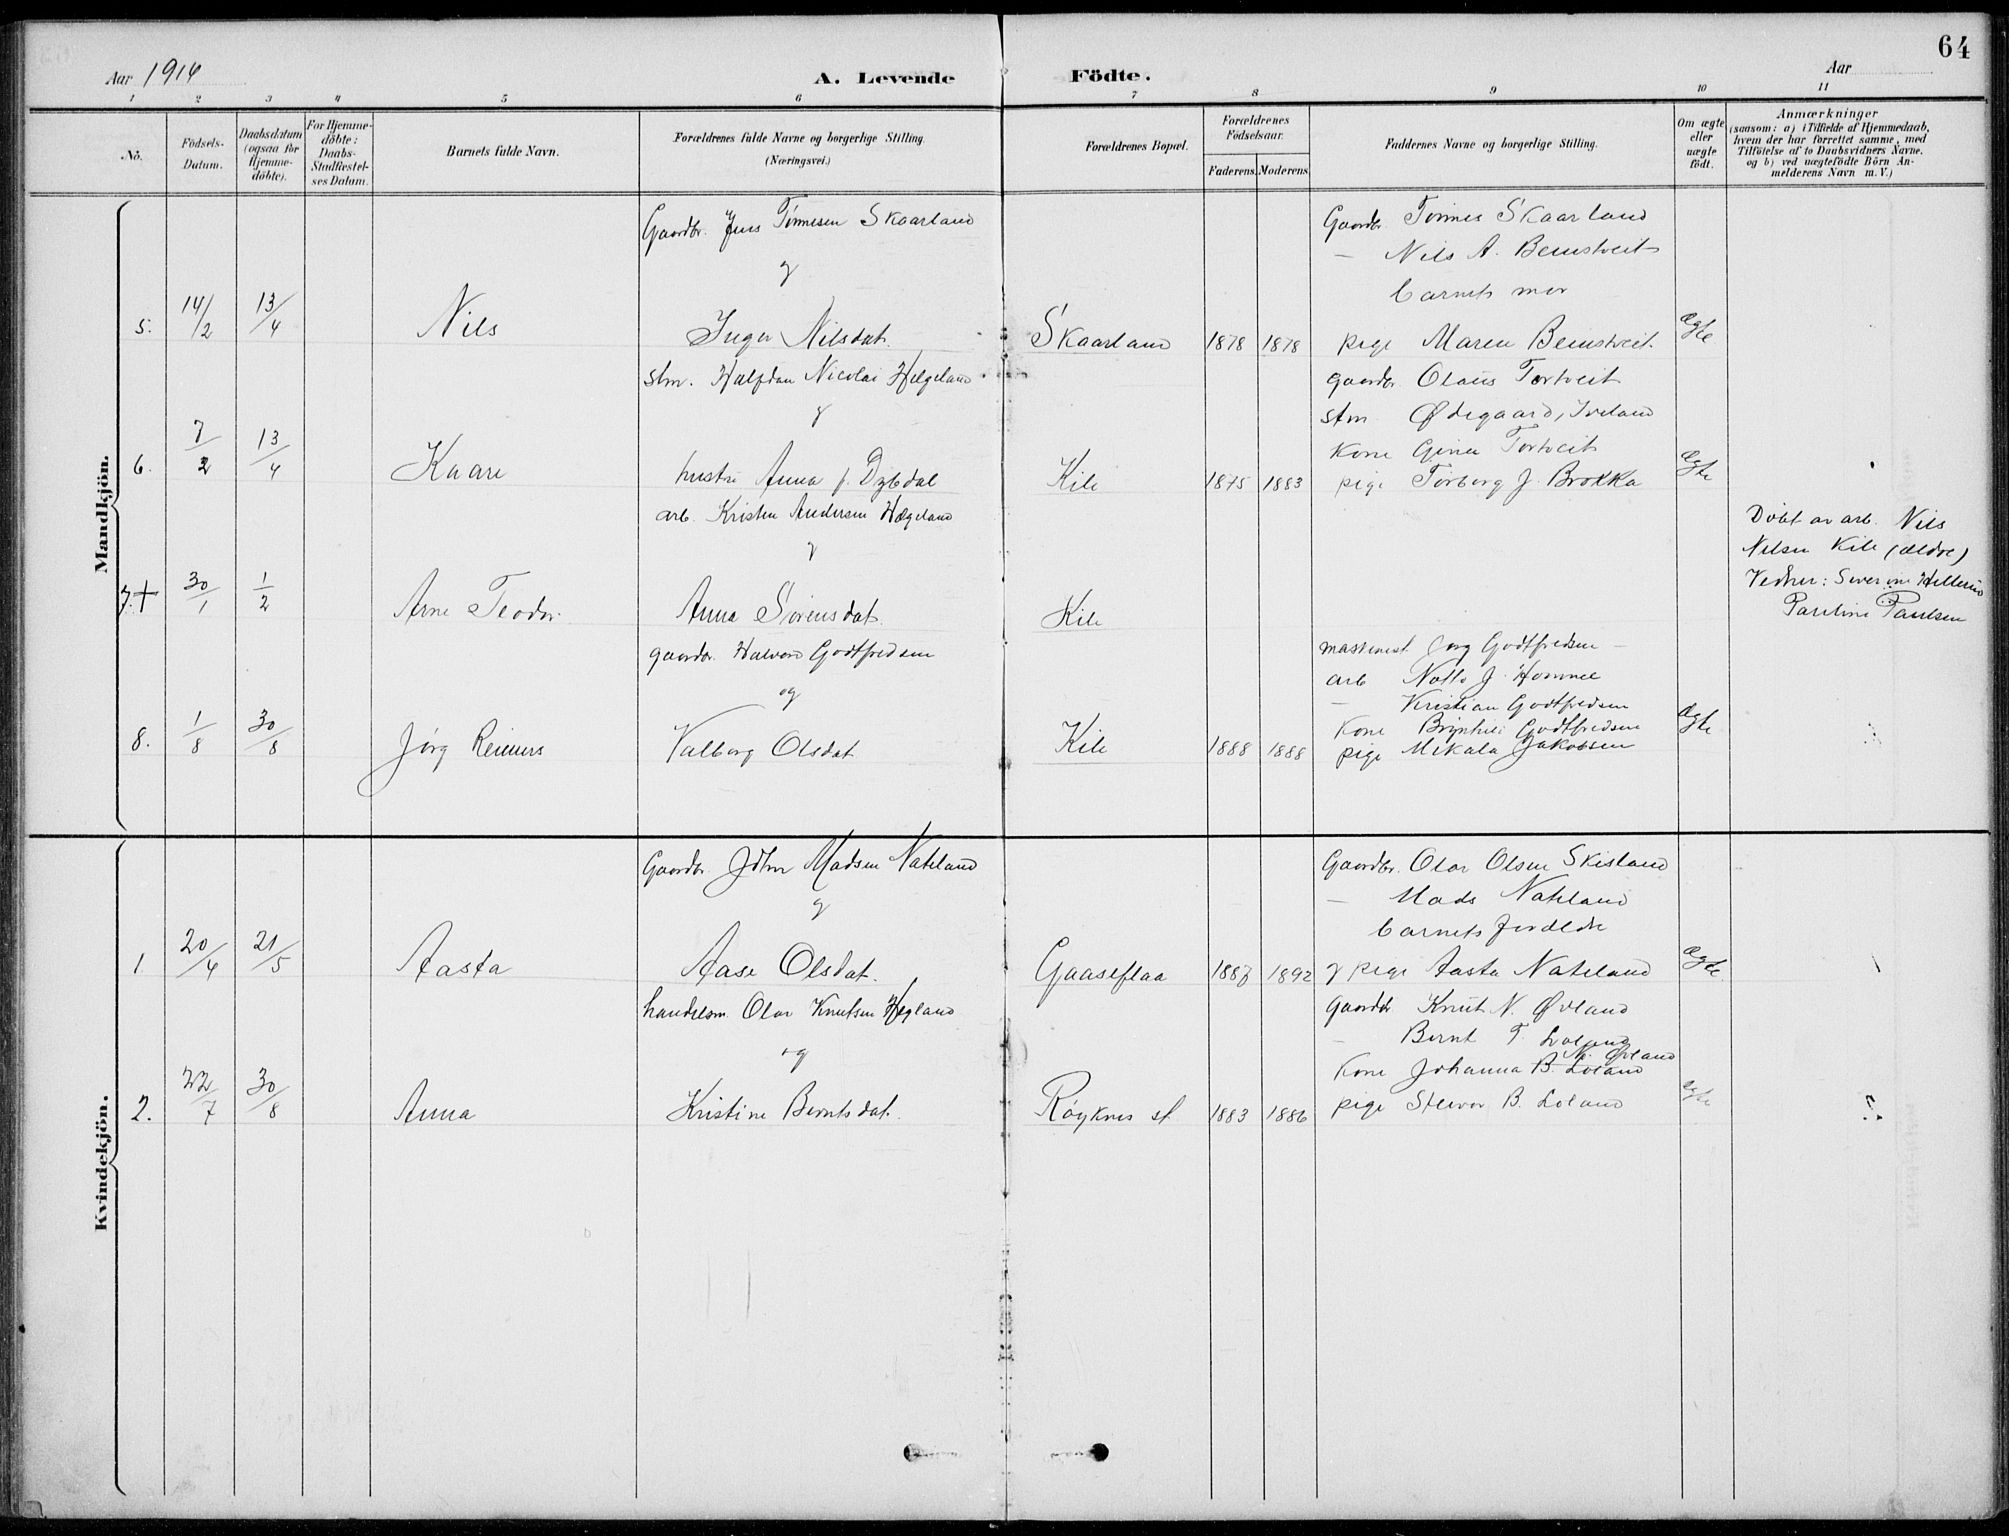 64
Aar 1916 A. Levende Födte. Aar
1 2 3 4 5 6 7 8 9 10 11
No.
Födsels-Datum.
Daabsdatum (ogsaa for Hjemme-döbte).
For Hjemme-döbte: Daabs-Stadfæstel-ses Datum.
Barnets fulde Navn.
Forældrenes fulde Navne og borgerlige Stilling.
(Næringsvei.)
Forældrenes Bopæl.
Forældrenes Födselsaar.
Faderens. Moderens.
Faddernes Navne og borgerlige Stilling.
Om ægte eller uægte födt.
Anmærkninger
(saasom: a) i Tilfælde af Hjemmedaab,
hvem der har forrettet samme, med
Tilföielse af to Daabsvidners Navne.
og b) ved uægtefödte Börn An-
melderens Navn m. V.)
Mandkjön.
Gaardbr. Jens Tønnesen Skaarland
Gaardbr. Tønnes Skaarland
— Nils A. Beinstveit
&
barnets mor
5. 14/2 13/4 Nils Inger Nilsdat. Skaarland 1878 1878 pige Maren Beinstveit. Ægte
stm. Halfdan Nicolai Helgeland
gaardbr. Olaus Tortveit
&
stm Ødegaard, Iveland
kone Gina Tortveit
6. 7/2 13/4 Kaare hustru Anna f. Dybdal Kile 1875 1883 pige Torborg J. Brokka Ægte
arb. Kristen Andersen Hægeland
Døbt av arb. Nils
&
Nilsen Kile (ældre)
7.+ 30/1 1/2 Arne Teodor Anna Sørensdat. Kile
Vedner: Severine
Pauline Paulsen
gaardbr. Halvord Godtfredsen
maskinist Jørg Godtfredsen —
arb Notto J. Homme
og
— Kristian Godtfredsen
kone Brynhild Godtfredsen
8. 1/8 30/8 Jørg Reimers Valborg Olsdat. Kile 1888 1888 pige Mikala Jakobsen Ægte
Kvindekjön.
Gaardbr. John Madsen Nateland
Gaardbr. Olav Olsen Skisland
&
— Mads Nateland
barnets forældre
1 20/4 21/5 Aasta Aase Olsdat. Gaaseflaa 1887 1892 & pige Aasta Nateland Ægte
handelsm. Olav Knutsen Hægland
Gaardbr Knut N. Øvland
og
— Bernt T. Loland
N. Øvland
kone Johanna B. Loland
2. 22/7 30/8 Anna Kristine Berntsdat. Røyknes st. 1883 1886 pige B. Loland ægte